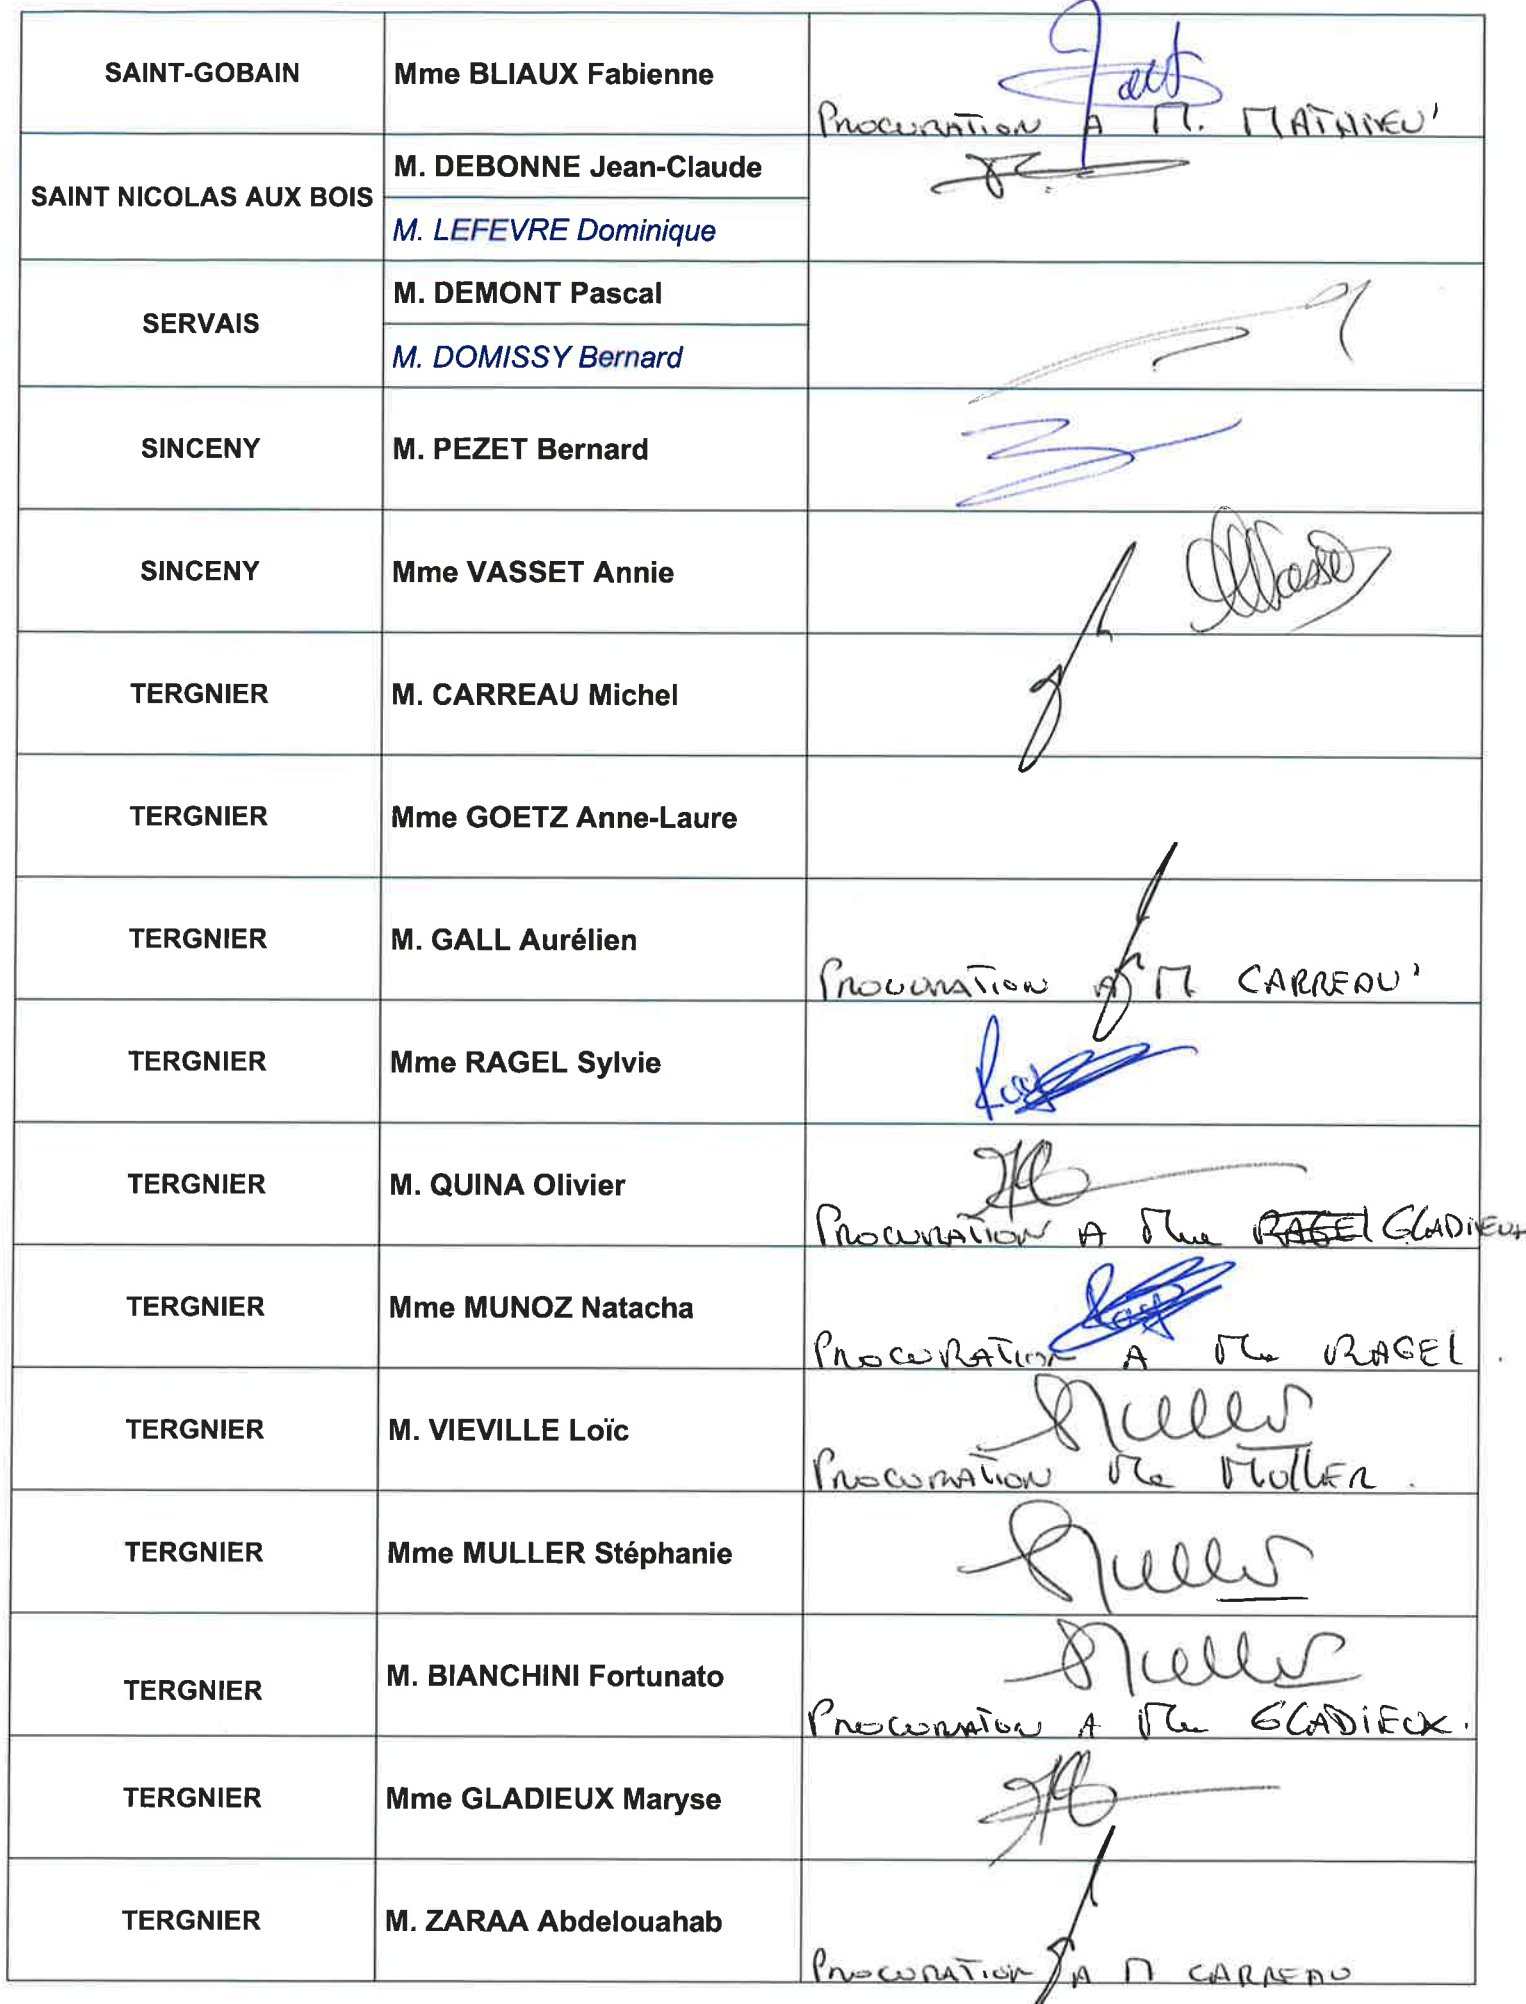 SAINT-GOBAIN
Mme BLIAUX Fabienne
PROCURATION A M. MATHIEU
SAINT NICOLAS AUX BOIS
M. DEBONNE Jean-Claude
M. LEFEVRE Dominique
SERVAIS
M. DEMONT Pascal
M. DOMISSY Bernard
SINCENY
M. PEZET Bernard
SINCENY
Mme VASSET Annie
TERGNIER
M. CARREAU Michel
TERGNIER
Mme GOETZ Anne-Laure
TERGNIER
M. GALL Aurélien
PROCURATION A M CARREAU
TERGNIER
Mme RAGEL Sylvie
TERGNIER
M. QUINA Olivier
PROCURATION A Mme RAGEL GLADIEUX
TERGNIER
Mme MUNOZ Natacha
PROCURATION A Me RAGEL.
TERGNIER
M. VIEVILLE Loïc
Muller
PROCURATION Me MULLER.
TERGNIER
Mme MULLER Stéphanie
Muller
TERGNIER
M. BIANCHINI Fortunato
Muller
PROCURATION A Me GLADIEUX.
TERGNIER
Mme GLADIEUX Maryse
TERGNIER
M. ZARAA Abdelouahab
PROCURATION A M CARREAU